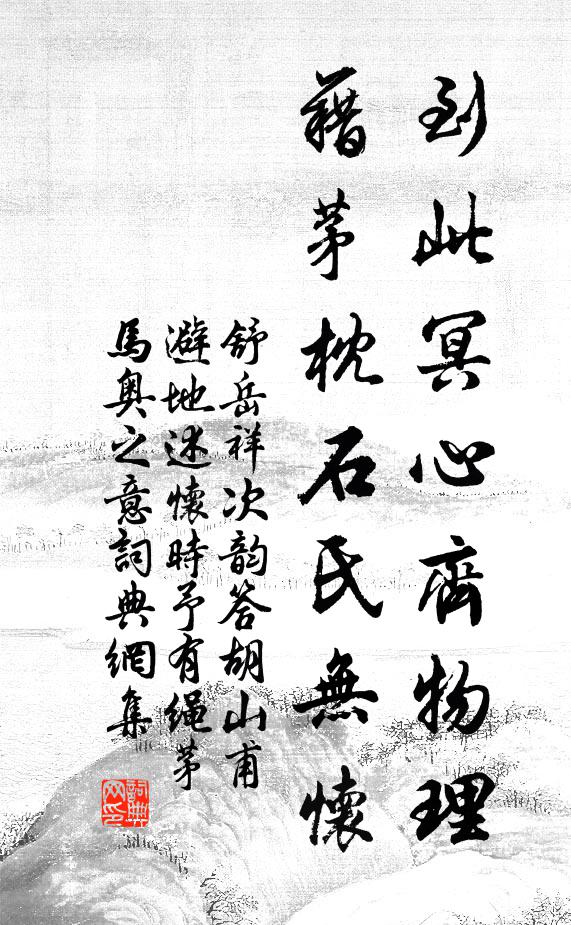 到此冥心齊物理
藉茅枕石氏無懷
舒岳祥次韵答胡山甫
避地述懷時予有绳茅
馬奥之意詞典網集
詞典网印